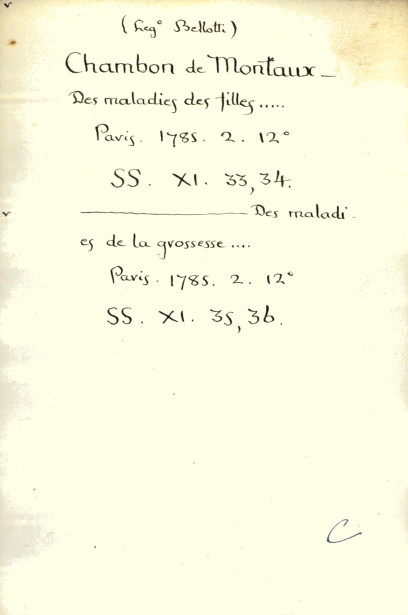 (Leg° Bellotti)
Chambon de Montaux_
Des maladies des filles.....
Paris. 1785. 2. 12°
SS. XI. 33, 34.
———————— Des maladi-
es de la grossesse....
Paris. 1785. 2. 12°
SS. XI. 35, 36.
C